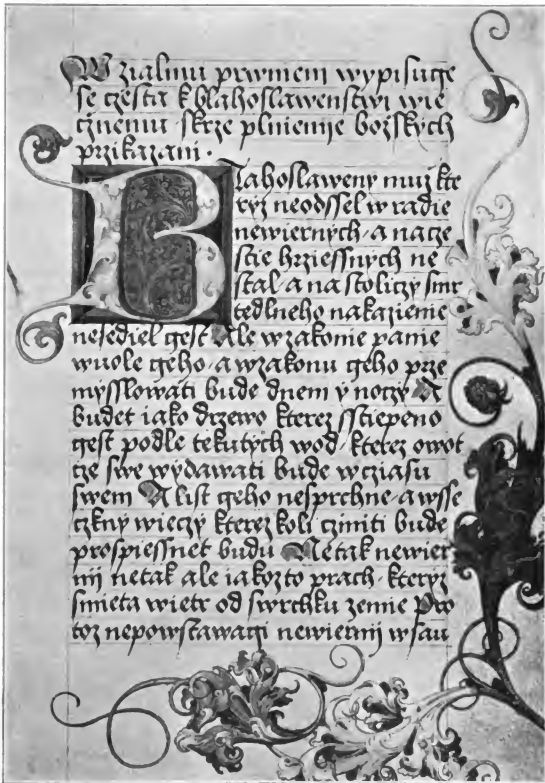 W zialmu prwniem wypisuge
se czesta k blahoslawenstwi wie
cznemu skrze plnienije bozskych
przikazani.
Blahoslaweny muz kte
ryz neodssel w radie
newiernych a na cze
stie hrziessnych ne
stal a na stoliczy smr
tedlneho nakazienie
nesediel gest Ale w zakonie panie
wuole geho a w zakonu geho prze
mysslowati bude dnem y noczy A
budet iako drzewo kterez sstiepeno
gest podle tekutych wod kterez owot
cze swe wydawati bude w cziasu
swem A list geho nesprchne a wsse
czkny wieczy kterez koli cziniti bude
prospiessnet budu Ne tak newier
nij ne tak ale iakozto prach kteryz
smieta wietr od swrchku zemie Pro
toz nepowstawagi newiernij w sau